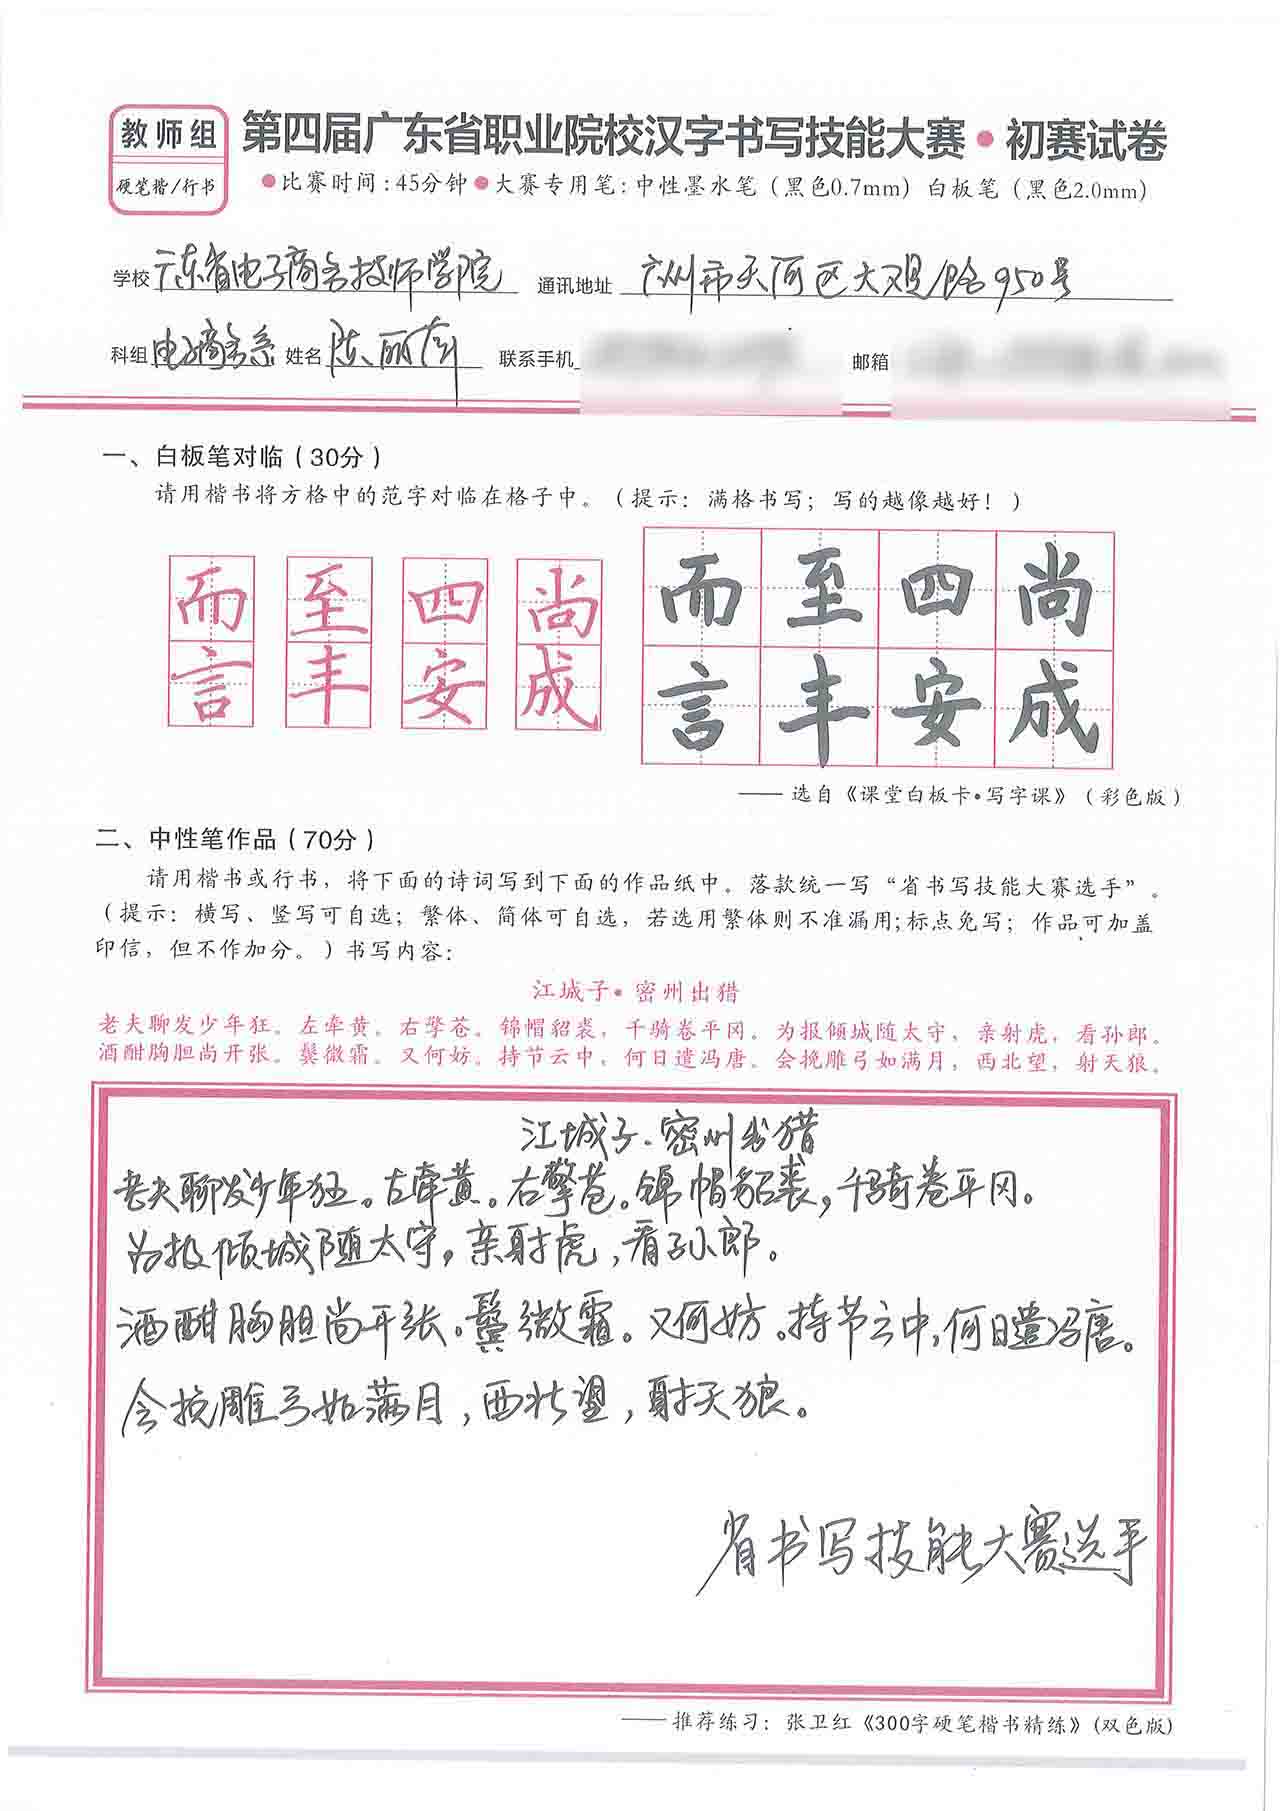 教师组
硬笔楷/行书
第四届广东省职业院校汉字书写技能大赛·初赛试卷
●比赛时间:45分钟●大赛专用笔:中性墨水笔（黑色0.7mm）白板笔（黑色2.0mm）
学校 广东省电子商务技师学院 通讯地址 广州市天河区大观路950号
科组 电子商务系 姓名 陈丽 联系手机 邮箱
一、白板笔对临（30分）
请用楷书将方格中的范字对临在格子中。（提示：满格书写；写的越像越好！）
而 至 四 尚 而 至 四 尚
言 丰 安 成 言 丰 安 成
——选自《课堂白板卡·写字课》（彩色版）
二、中性笔作品（70分）
请用楷书或行书，将下面的诗词写到下面的作品纸中。落款统一写“省书写技能大赛选手”。
（提示：横写、竖写可自选；繁体、简体可自选，若选用繁体则不准漏用;标点免写；作品可加盖
印信，但不作加分。）书写内容：
江城子·密州出猎
老夫聊发少年狂。左牵黄。右擎苍。锦帽貂裘，千骑卷平冈。为报倾城随太守，亲射虎，看孙郎。
酒酣胸胆尚开张。鬓微霜。又何妨。持节云中，何日遣冯唐。会挽雕弓如满月，西北望，射天狼。
江城子·密州出猎
老夫聊发少年狂。左牵黄。右擎苍。锦帽貂裘，千骑卷平冈。
为报倾城随太守，亲射虎，看孙郎。
酒酣胸胆尚开张。鬓微霜。又何妨。持节云中，何日遣冯唐。
会挽雕弓如满月，西北望，射天狼。
省书写技能大赛选手
——推荐练习：张卫红《300字硬笔楷书精练》(双色版)